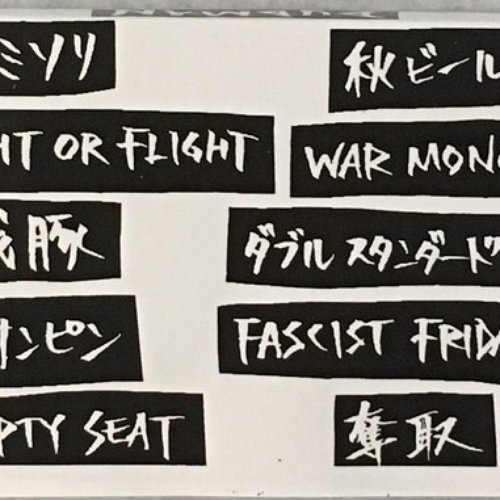 ミソリ
HT OR FLIGHT
豚
サンピン
PTY SEAT
秋ビール
WAR MONG
ダブルスタンダード
FASCIST FRIDA
奪取